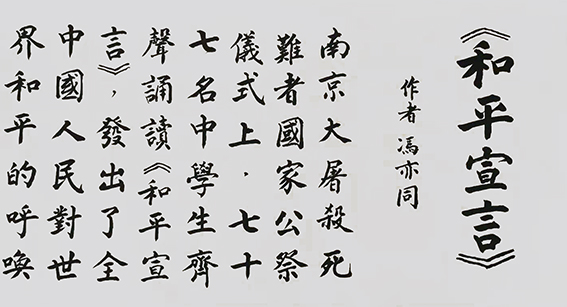 《和平宣言》
作者 馮亦同
南京大屠殺死
難者國家公祭
儀式上，七十
七名中學生齊
聲誦讀《和平宣
言》，發出了全
中國人民對世
界和平的呼喚